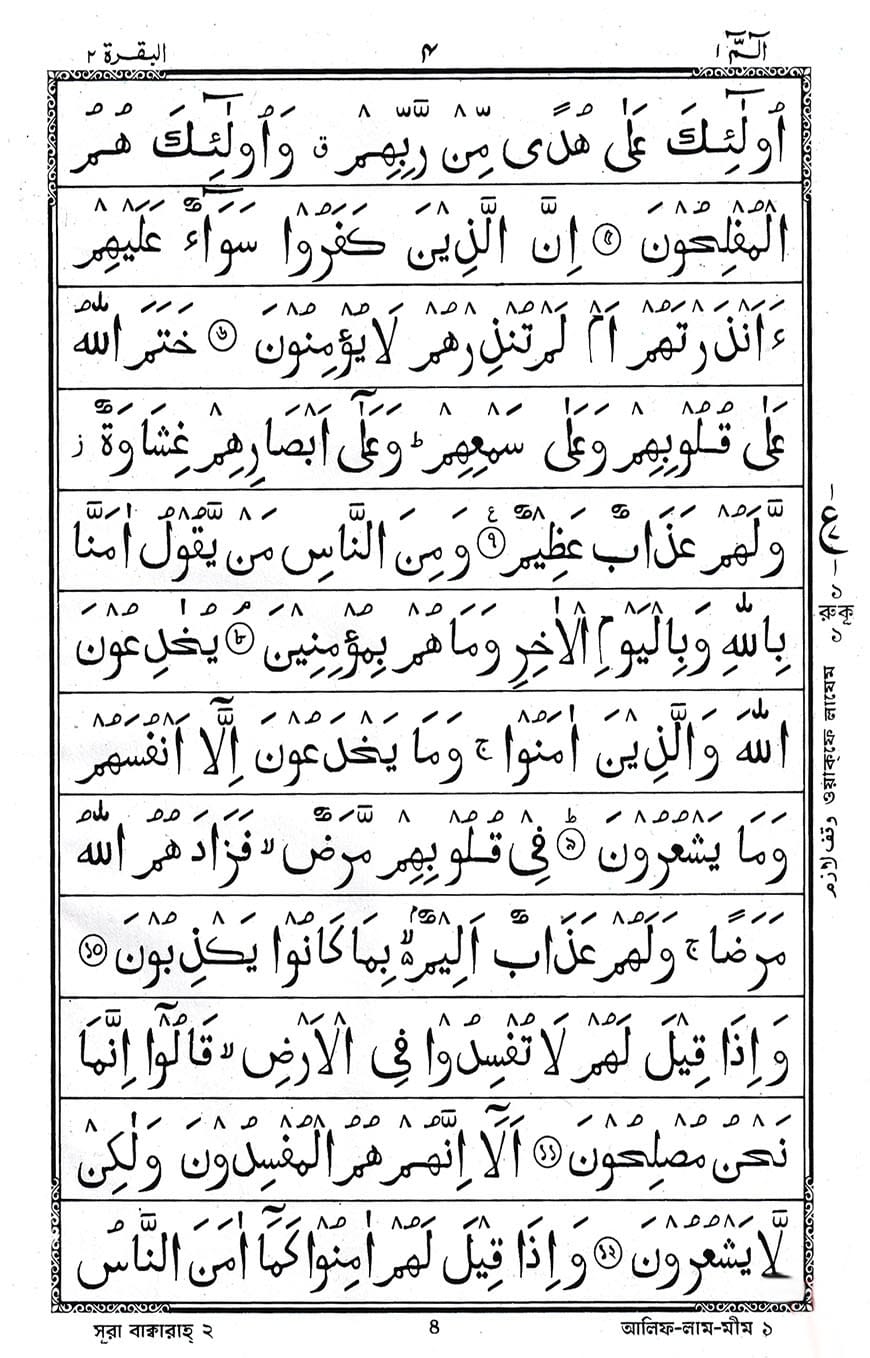 الٓمّٓ ١ ۴ البقرة ٢
اُولٰٓئِكَ عَلٰى هُدًى مِّنْ رَّبِّهِمْ ق وَاُولٰٓئِكَ هُمُ
الْمُفْلِحُوْنَ ৫ اِنَّ الَّذِيْنَ كَفَرُوْا سَوَآءٌ عَلَيْهِمْ
ءَاَنْذَرْتَهُمْ اَمْ لَمْ تُنْذِرْهُمْ لَا يُؤْمِنُوْنَ ৬ خَتَمَ اللّٰهُ
عَلٰى قُلُوْبِهِمْ وَعَلٰى سَمْعِهِمْ ط وَعَلٰٓى اَبْصَارِهِمْ غِشَاوَةٌ ز
وَّلَهُمْ عَذَابٌ عَظِيْمٌ ৭ ع وَمِنَ النَّاسِ مَنْ يَّقُوْلُ اٰمَنَّا
بِاللّٰهِ وَبِالْيَوْمِ الْاٰخِرِ وَمَا هُمْ بِمُؤْمِنِيْنَ ৮ م يُخٰدِعُوْنَ
اللّٰهَ وَالَّذِيْنَ اٰمَنُوْا ج وَمَا يَخْدَعُوْنَ اِلَّآ اَنْفُسَهُمْ
وَمَا يَشْعُرُوْنَ ৯ ط فِيْ قُلُوْبِهِمْ مَّرَضٌ لا فَزَادَهُمُ اللّٰهُ
مَرَضًا ج وَلَهُمْ عَذَابٌ اَلِيْمٌۢ ۵ لا بِمَا كَانُوْا يَكْذِبُوْنَ ১০
وَاِذَا قِيْلَ لَهُمْ لَا تُفْسِدُوْا فِى الْاَرْضِ لا قَالُوْٓا اِنَّمَا
نَحْنُ مُصْلِحُوْنَ ১১ اَلَآ اِنَّهُمْ هُمُ الْمُفْسِدُوْنَ وَلٰكِنْ
لَّا يَشْعُرُوْنَ ১২ وَاِذَا قِيْلَ لَهُمْ اٰمِنُوْا كَمَآ اٰمَنَ النَّاسُ
ع ১
রুকূ ১
وقف لازم ওয়াক্‌ফে লাযেম
সূরা বাক্বারাহ্ ২ 8 আলিফ-লাম-মীম ১